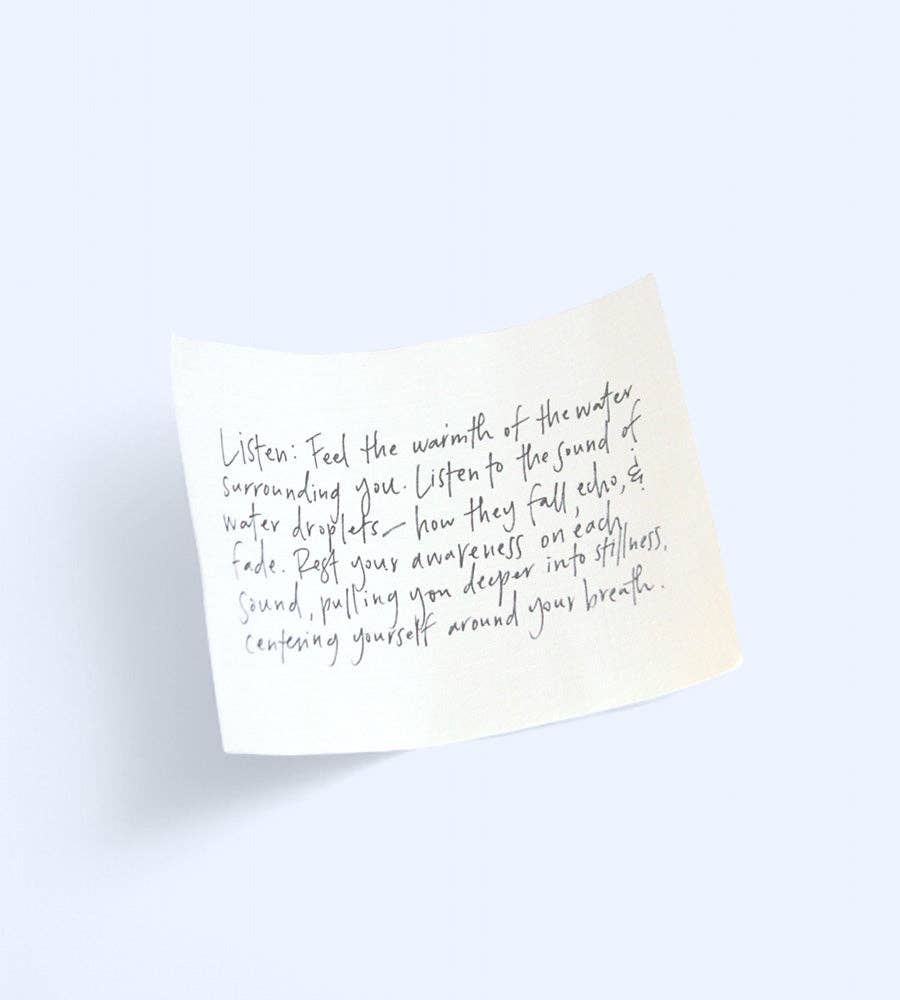 Listen: Feel the warmth of the water
surrounding you. Listen to the sound of
water droplets – how they fall, echo, &
fade. Rest your awareness on each
sound, pulling you deeper into stillness,
centering yourself around your breath.